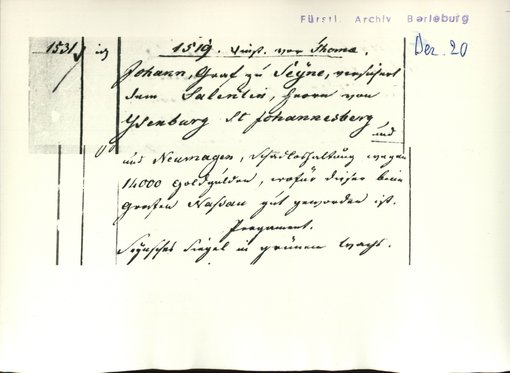 Fürstl. Archiv Berleburg
Dez. 20
1531
1519. Dinst. vor Thome.
Johann, Graf zu Seyne, versichert
dem Salentin, Herrn von
Ysenburg St Johannesberg
und
und Neumagen, Schadloshaltung wegen
14000 Goldgulden, wofür dieser beim
Grafen Naßau gut geworden ist.
Pergament.
Seynsches Siegel in grünem Wachs.